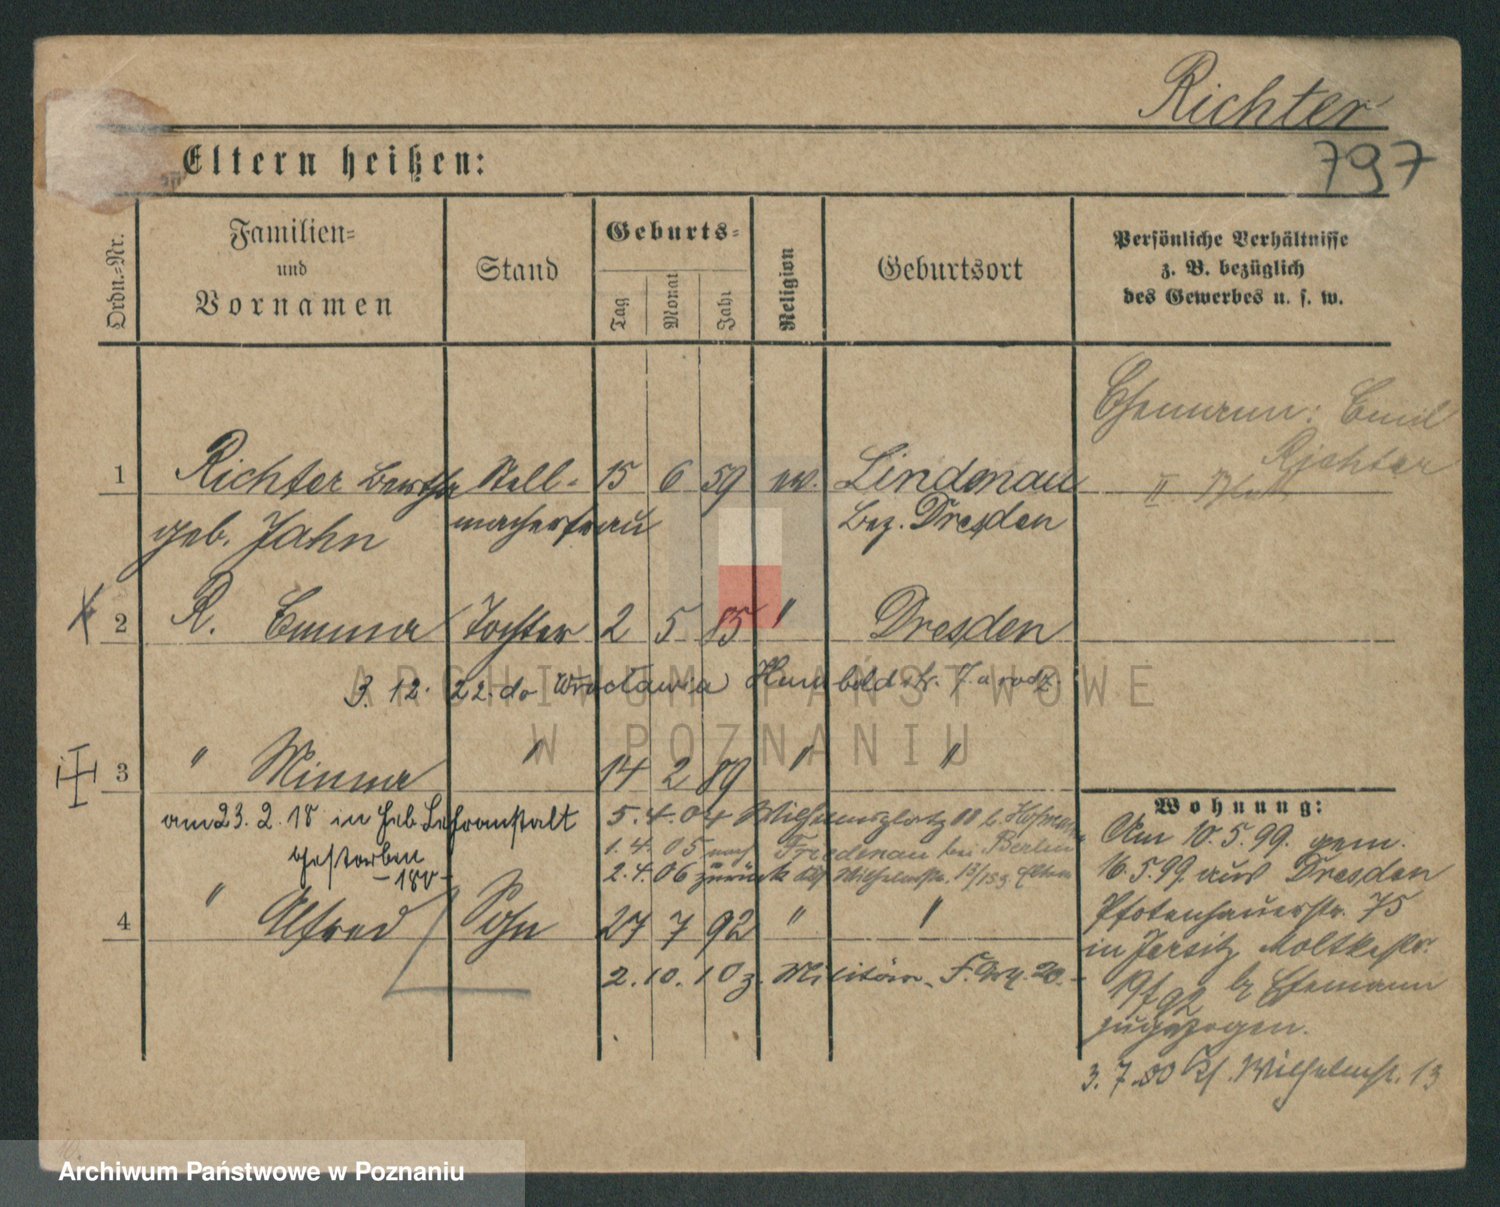 Richter
797
Eltern heißen:
Ordn.-Nr.
Familien-
und
Vornamen
Stand
Geburts-
Tag
Monat
Jahr
Religion
Geburtsort
Persönliche Verhältnisse
z. B. bezüglich
des Gewerbes u. s. w.
Ehemann: Emil
Richter
II
1 Richter Bertha Stell- 15 6 59 ev. Lindenau
geb. Jahn macherfrau Bez. Dresden
2 R. Emma Tochter 2 5 85 " Dresden
3. 12. 22. do Wrocławia Humboldstr. 7 u rodz.
3 " Minna " 14 2 89 " "
am 23. 2. 18 in Heb. Lehranstalt
gestorben
5. 4. 04 Wilhelmsplatz 18 b. Hofmann
1. 4. 05 nach Friedenau bei Berlin
2. 4. 06 zurück Wilhelmstr. 13/153 Eltern
4 " Alfred Sohn 27 7 92 " "
2. 10. 10 z. Militär. F. 20.
Wohnung:
Am 10. 5. 99. gem.
16. 5. 99 aus Dresden
Pfotenhauerstr. 75
in Jersitz Moltkestr.
Ehemann
zugezogen.
3. 7. 00 Wilhelmstr. 13
ARCHIWUM PAŃSTWOWE
W POZNANIU
Archiwum Państwowe w Poznaniu